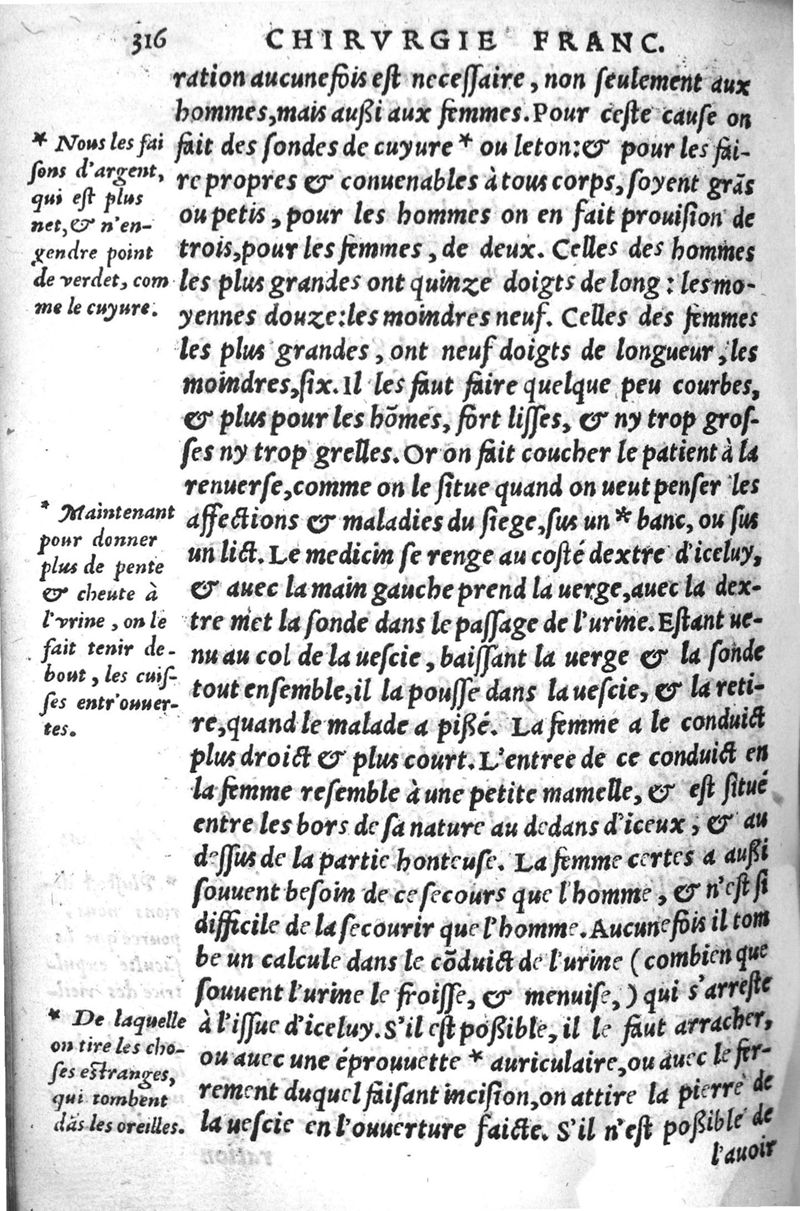 316 CHIRVRGIE FRANC.
ration aucunefois est necessaire, non seulement aux
hommes, mais außi aux femmes. Pour ceste cause on
fait des sondes de cuyure * ou leton: & pour les fai-
re propres & conuenables à tous corps, soyent grās
ou petis, pour les hommes on en fait prouision de
trois, pour les femmes, de deux. Celles des hommes
les plus grandes ont quinze doigts de long : les mo-
yennes douze: les moindres neuf. Celles des femmes
les plus grandes, ont neuf doigts de longueur, les
moindres, six. Il les faut faire quelque peu courbes,
& plus pour les hõmes, fort lisses, & ny trop gros-
ses ny trop grelles. Or on fait coucher le patient à la
renuerse, comme on le situe quand on ueut penser les
affections & maladies du siege, sus un * banc, ou sus
un lict. Le medicin se renge au costé dextre d'iceluy,
& auec la main gauche prend la uerge, auec la dex-
tre met la sonde dans le passage de l'urine. Estant ue-
nu au col de la uescie, baissant la uerge & la sonde
tout ensemble, il la pousse dans la uescie, & la reti-
re, quand le malade a pißé. La femme a le conduict
plus droict & plus court. L'entree de ce conduict en
la femme resemble à une petite mamelle, & est situé
entre les bors de sa nature au dedans d'iceux, & au
dessus de la partie honteuse. La femme certes a außi
souuent besoin de ce secours que l'homme, & n'est si
difficile de la secourir que l'homme. Aucunefois il tom
be un calcule dans le cõduict de l'urine (combien que
souuent l'urine le froisse, & menuise,) qui s'arreste
à l'issue d'iceluy. S'il est poßible, il le faut arracher,
ou auec une éprouuette * auriculaire, ou auec le fer-
rement duquel faisant incision, on attire la pierre de
la uescie en l'ouuerture faicte. S'il n'est poßible de
l'auoir
* Nous les fai
sons d'argent,
qui est plus
net, & n'en-
gendre point
de verdet, com
me le cuyure.
* Maintenant
pour donner
plus de pente
& cheute à
l'vrine, on le
fait tenir de-
bout, les cuis-
ses entr'ouuer-
tes.
* De laquelle
on tire les cho-
ses estranges,
qui tombent
dās les oreilles.